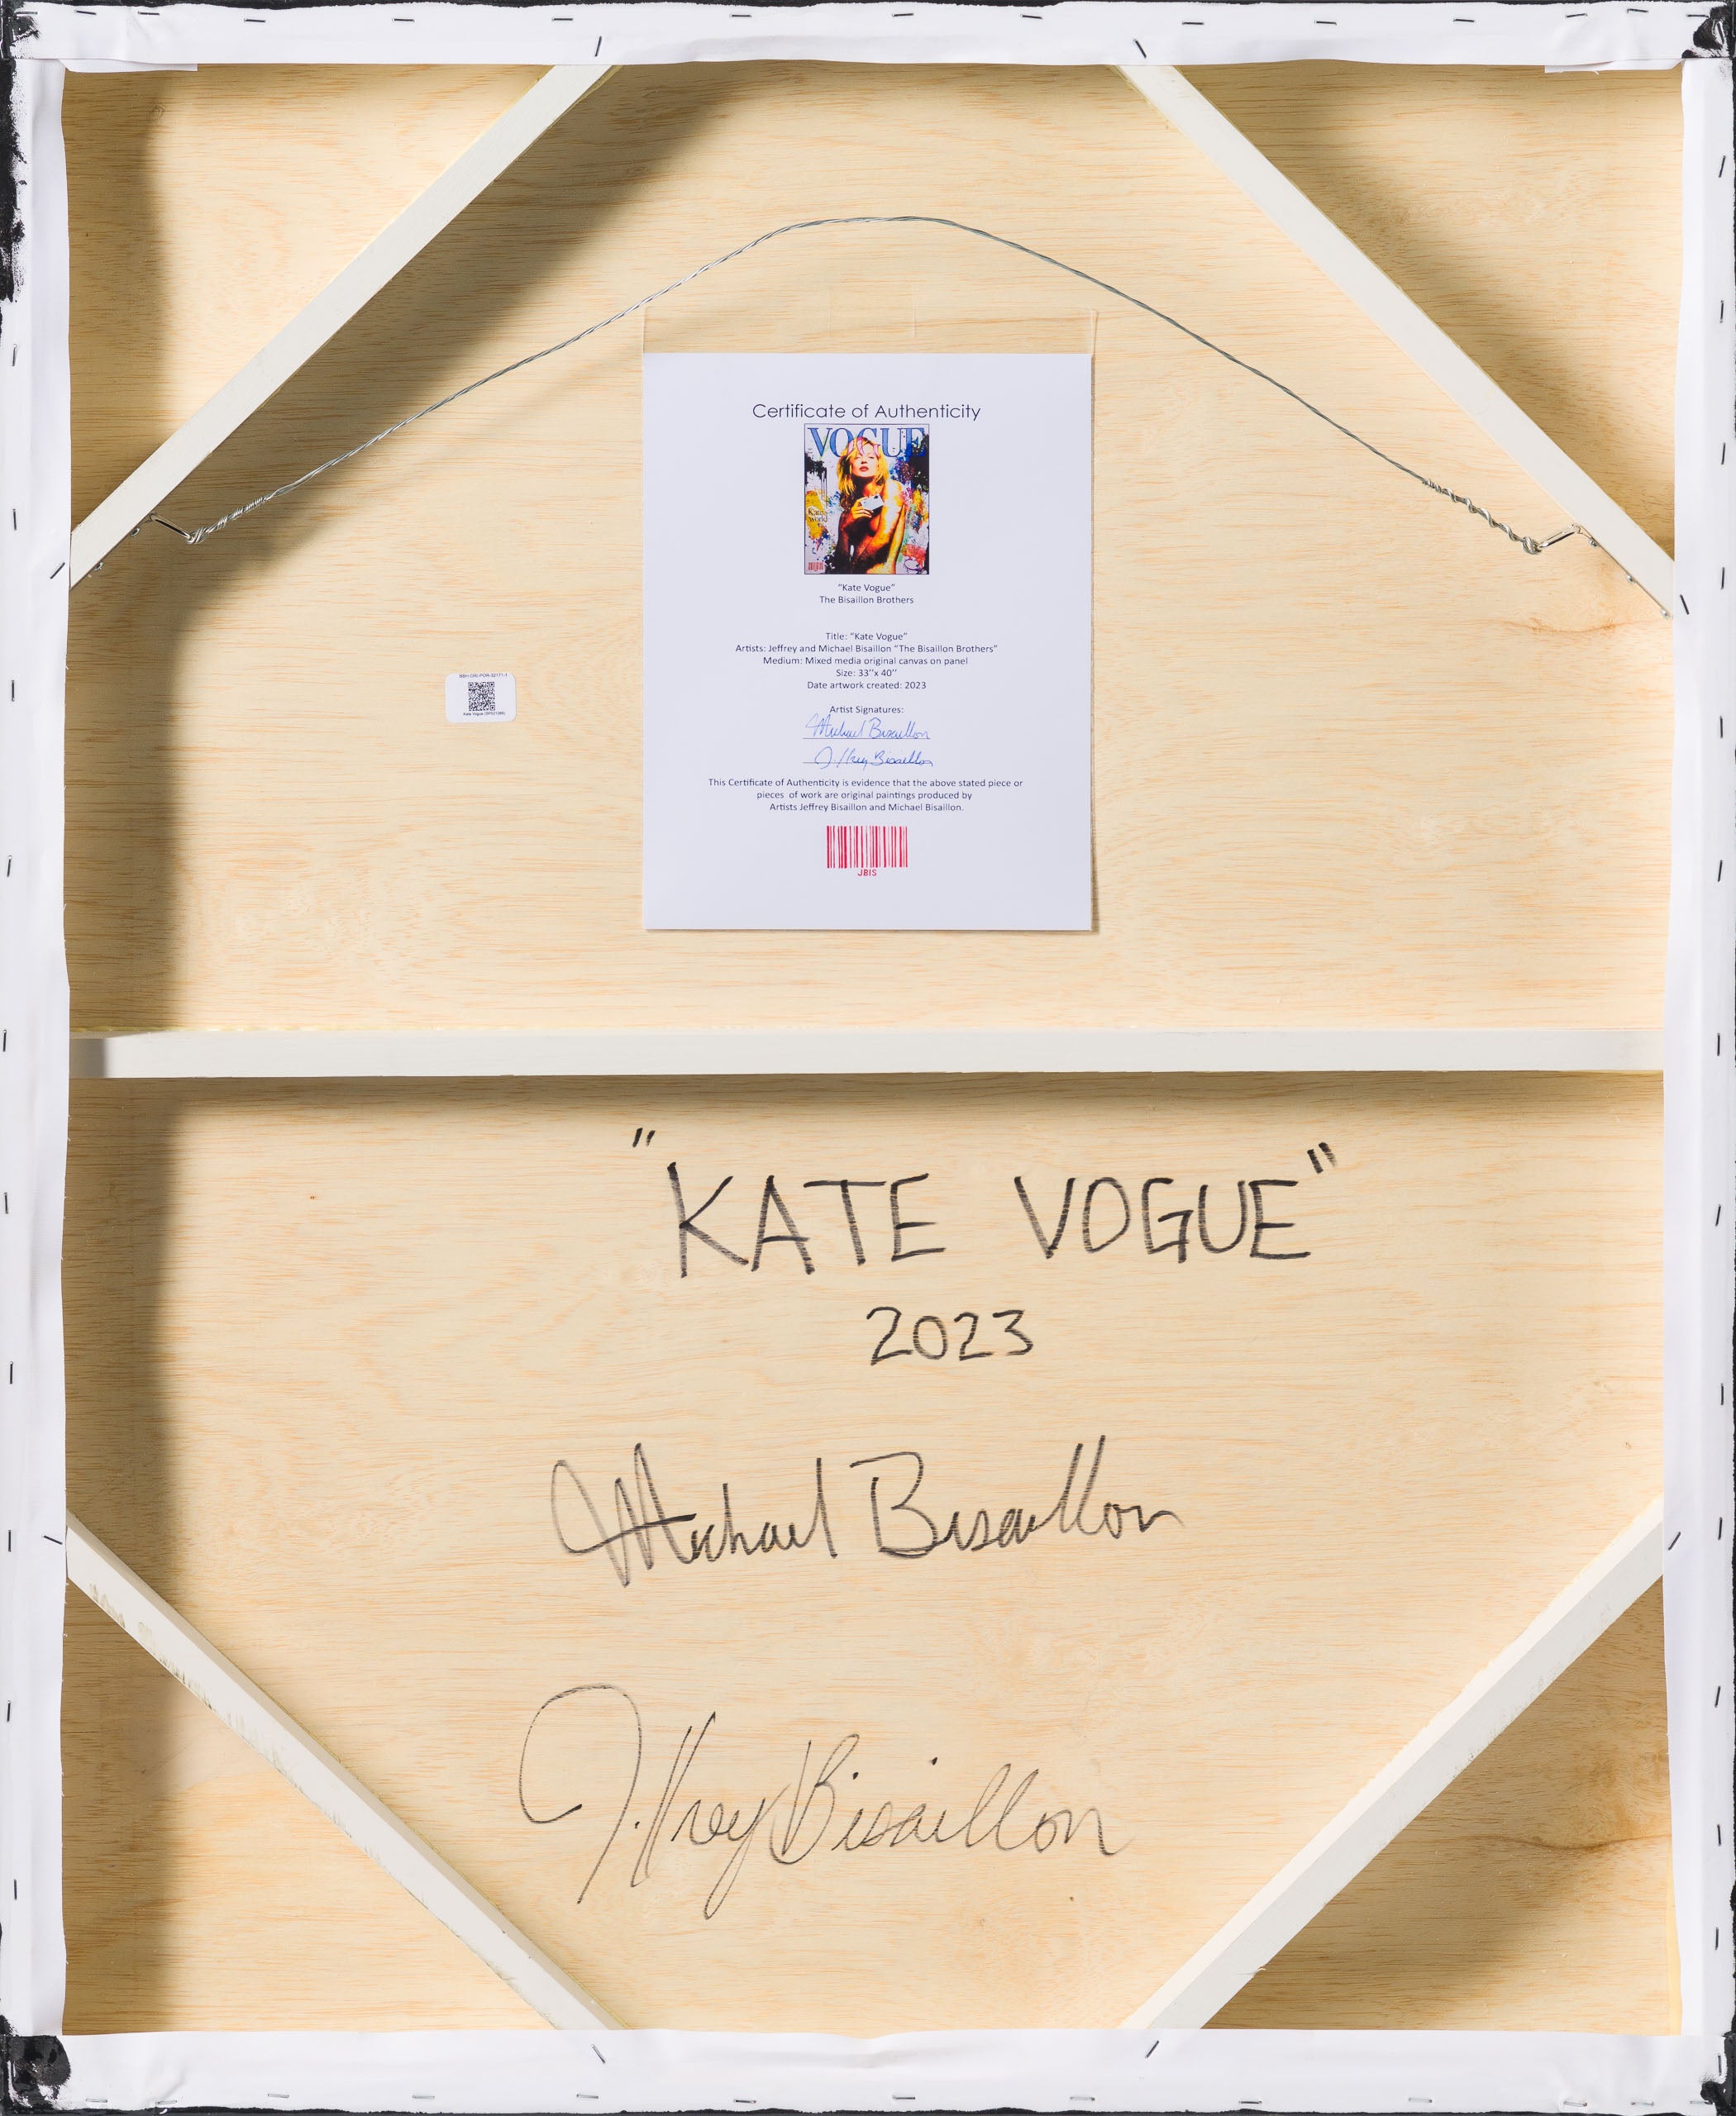 Certificate of Authenticity
VOGUE
Kate's
world
"Kate Vogue"
The Bisaillon Brothers
Title: "Kate Vogue"
Artists: Jeffrey and Michael Bisaillon "The Bisaillon Brothers"
Medium: Mixed media original canvas on panel
Size: 33"x 40"
Date artwork created: 2023
Artist Signatures:
Michael Bisaillon
Jeffrey Bisaillon
This Certificate of Authenticity is evidence that the above stated piece or
pieces of work are original paintings produced by
Artists Jeffrey Bisaillon and Michael Bisaillon.
JBIS
"KATE VOGUE"
2023
Michael Bisaillon
Jeffrey Bisaillon